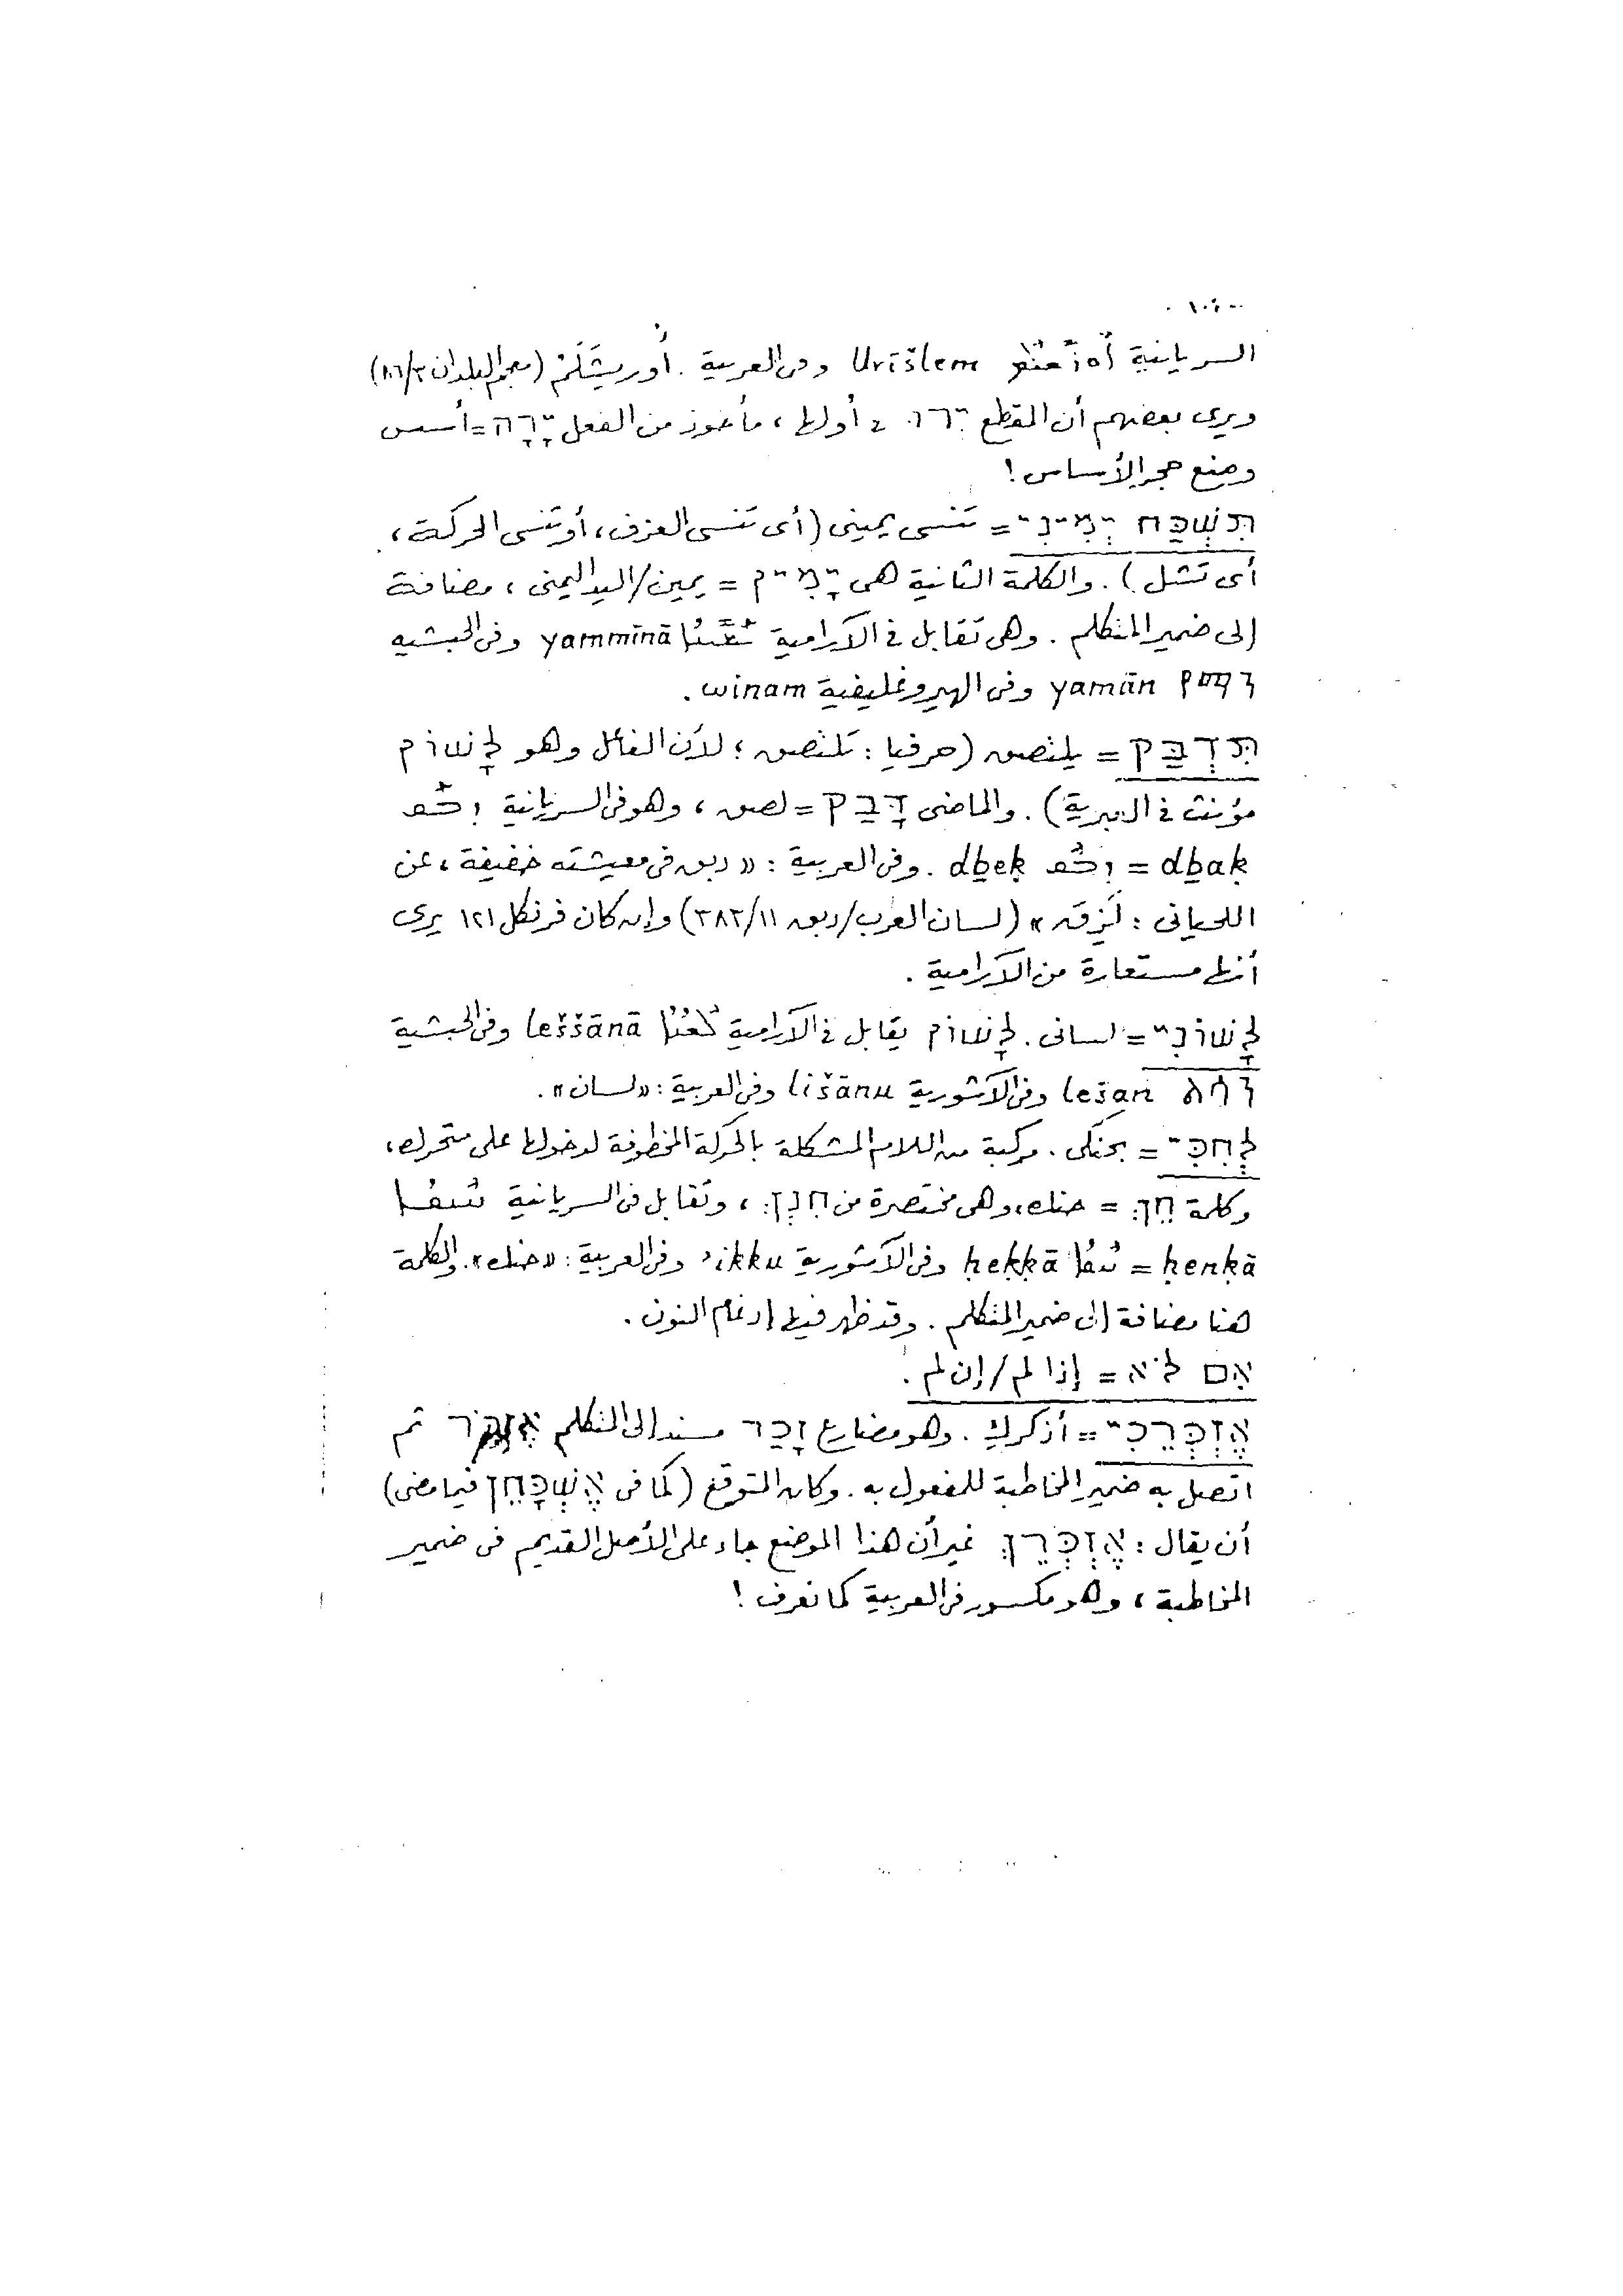 السريانية ܐܘܪܫܠܡ Urišlem وفى العربية. أُورِيشَلَمْ (معجم البلدان
ويرى بعضهم أن المقطع فى أولها، مأخوذ من الفعل יָרָה = أسس
وضع حجر الأساس!
תִּשְׁכַּח יְמִינִי = تنسى يمينى (أى تنسى العزف، أو تنسى الحركة،
أى تشل). والكلمة الثانية هى יָמִין = يمين/اليد اليمنى، مضافة
إلى ضمير المتكلم. وهى تقابل فى الآرامية ܝܡܝܢܐ yammīnā وفى الحبشيه
የማን yamān وفى الهيروغليفية winam.
תִּדְבַּק = يلتصق (حرفيا: تلتصق؛ لأن الفاعل وهو לָשׁוֹן
مؤنث فى العبرية). والماضى דָּבַק = لصق، وهو فى السريانية ܕܒܩ
dḇaḳ = ܕܒܩ dḇeḳ. وفى العربية: «دبق فى معيشته خفيفة، عن
اللحيانى: لَزِقَ» (لسان العرب/دبق ١١/٣٨٣) وإن كان فرنكل ١٢١ يرى
أنها مستعارة من الآرامية.
לְשׁוֹנִי = لسانى. לָשׁוֹן يقابل فى الآرامية ܠܫܢܐ leššānā وفى الحبشية
ልሳን lešan وفى الآشورية lišānu وفى العربية: «لسان».
לְחִכִּי = بحنكى. مركبة من اللام المشكلة بالحركة المخطوفة لدخولها على متحرك،
وكلمة חֵךְ = حنك، وهى مختصرة من חִנְךְ، وتقابل فى السريانية ܚܢܟܐ
ḥenkā = ܚܟܐ ḥekkā وفى الآشورية ʾikku وفى العربية: «حنك». والكلمة
هنا مضافة إلى ضمير المتكلم. وقد ظهر فيها إدغام النون.
אִם לֹא = إذا لم/إن لم.
אֶזְכְּרֵכִי = أذكركِ. وهو مضارع זָכַר مسند إلى المتكلم אֶזְכֹּר ثم
اتصل به ضمير المخاطبة للمفعول به. وكان المتوقع (كما فى אֶשְׁכָּחֵךְ فيما مضى)
أن يقال: אֶזְכְּרֵךְ غير أن هذا الموضع جاء على الأصل القديم فى ضمير
المخاطبة، وهو مكسور فى العربية كما نعرف!